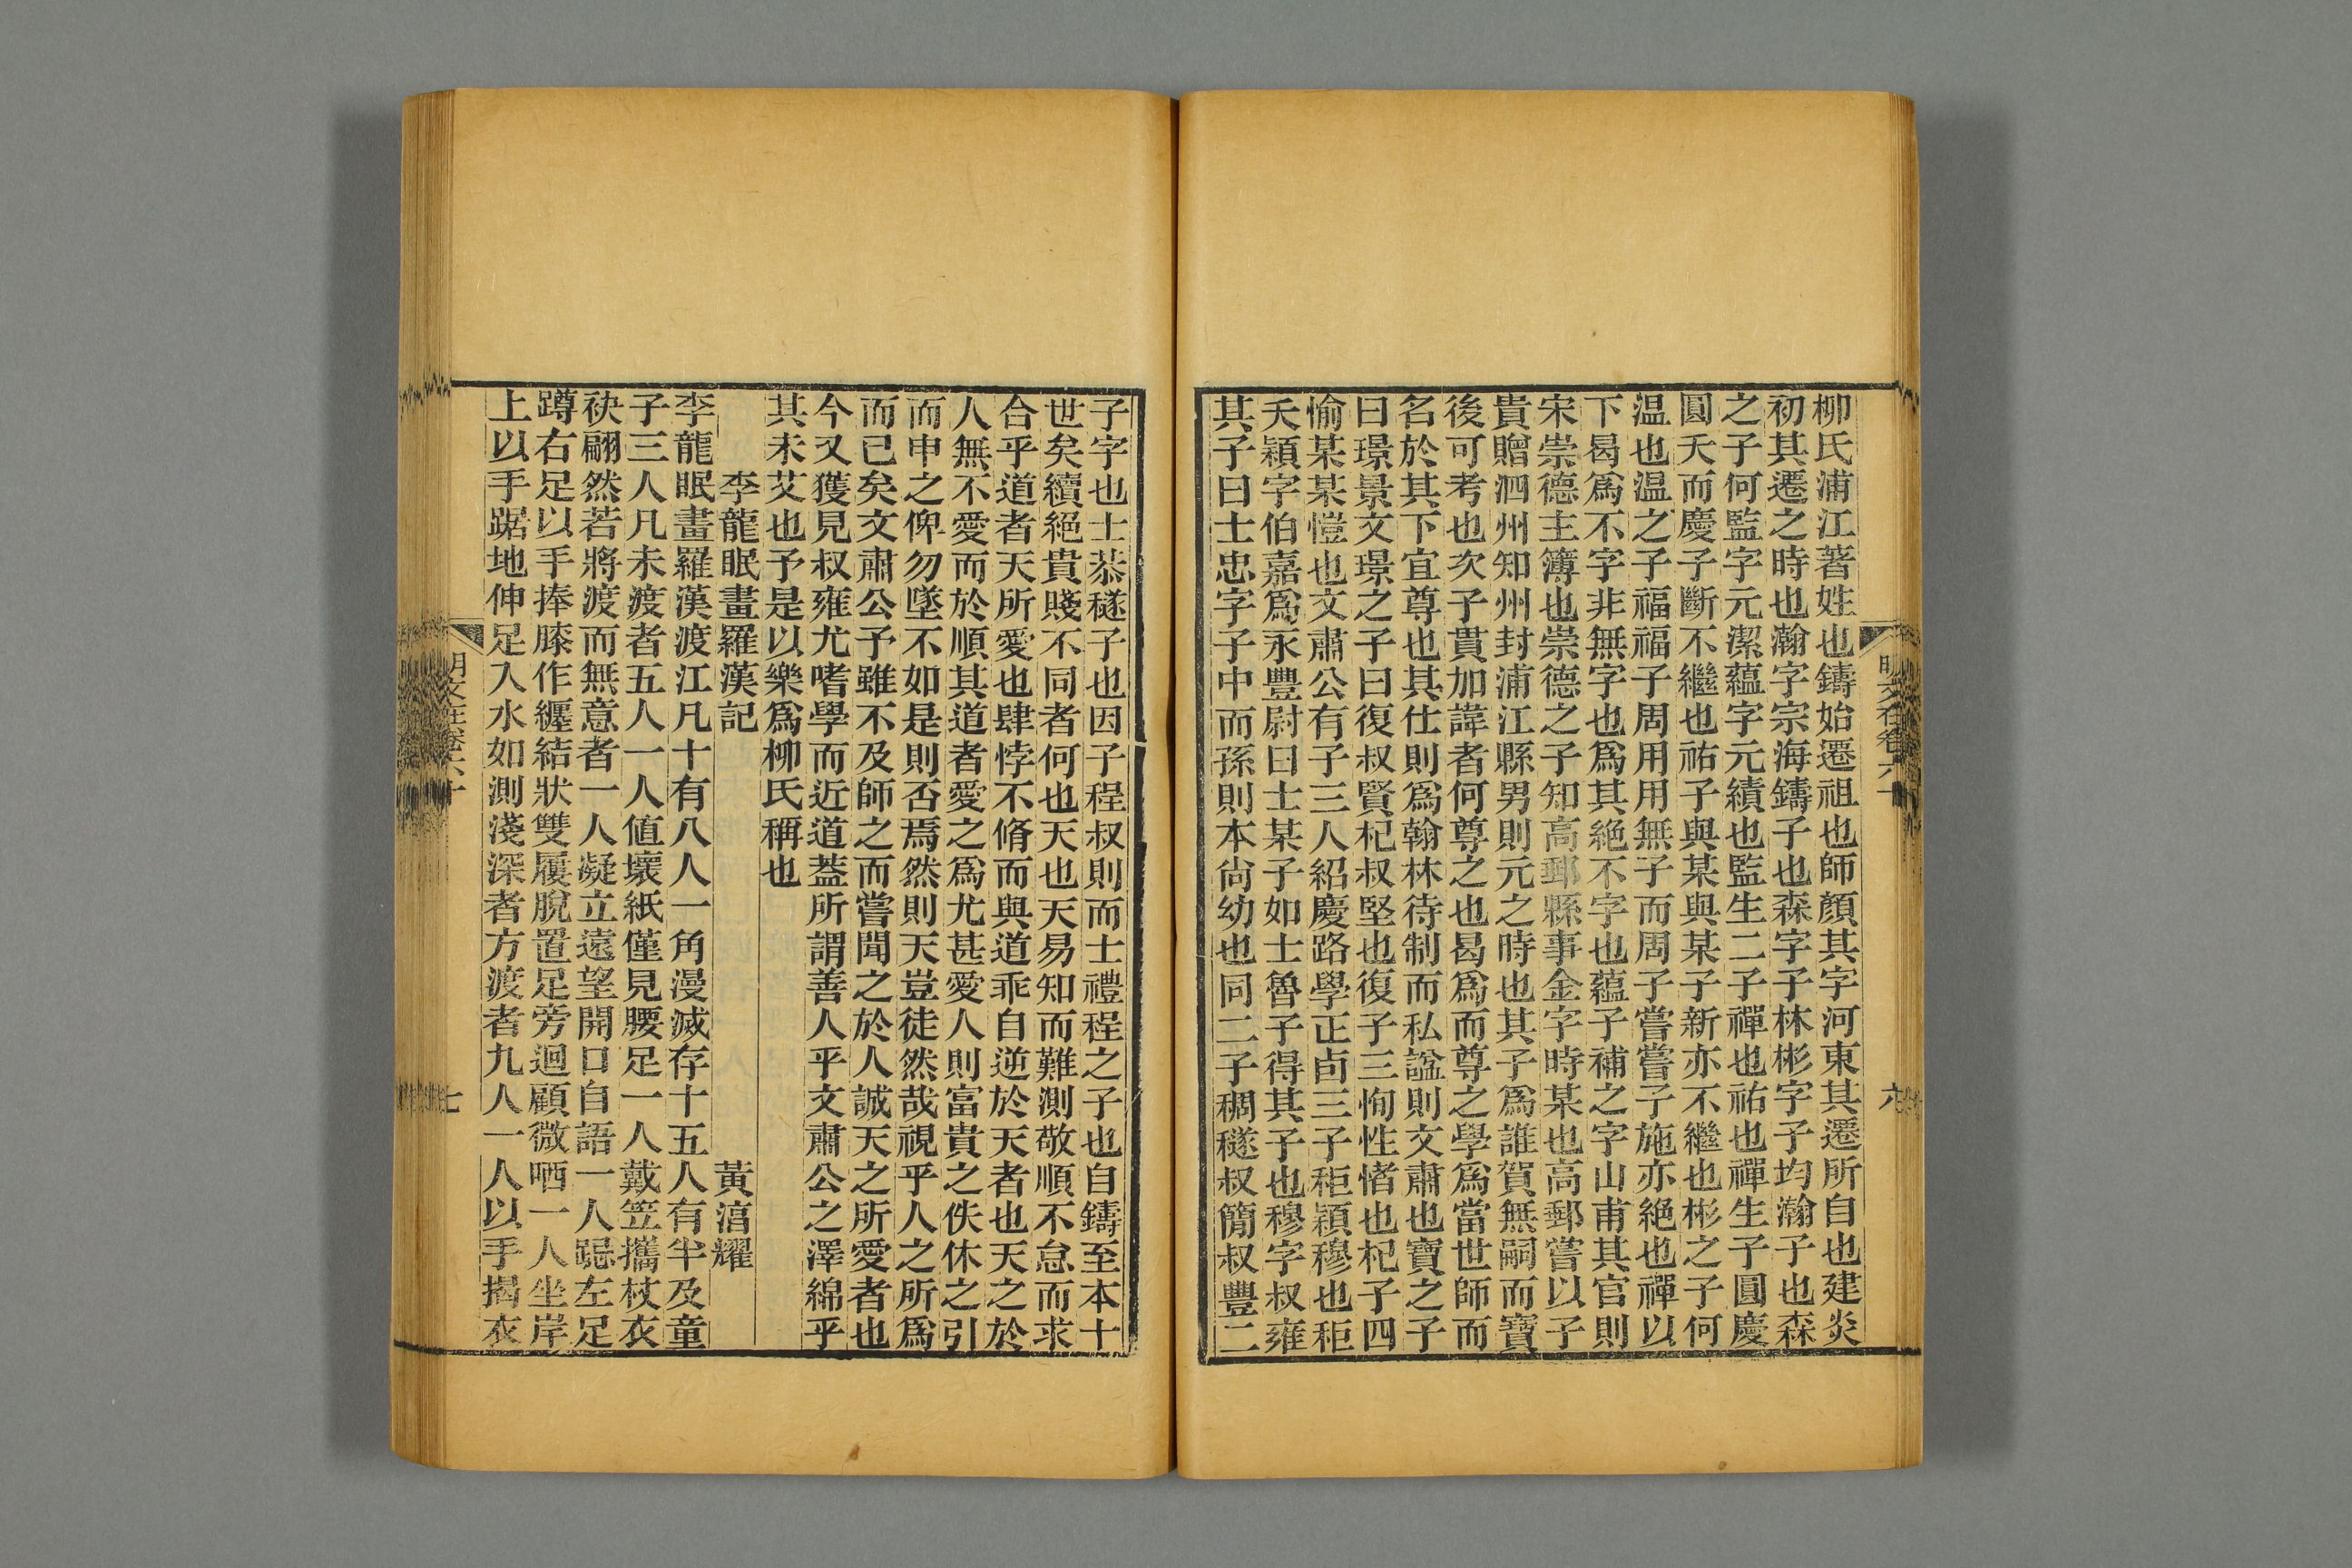 柳氏浦江著姓也鑄始遷祖也師顏其字河東其遷所自也建炎
初其遷之時也瀚字宗海鑄子也森字子林彬字子均瀚子也森
之子何監字元潔蘊字元績也監生二子禪也祐也禪生子圓慶
圓夭而慶子斷不繼也祐子與某與某子新亦不繼也彬之子何
温也温之子福福子周用用無子而周子嘗嘗子施亦絕也禪以
下曷爲不字非無字也爲其絕不字也蘊子補之字山甫其官則
宋崇德主簿也崇德之子知高郵縣事金字時某也高郵嘗以子
貴贈泗州知州封浦江縣男則元之時也其子爲誰賀無嗣而寶
後可考也次子貫加諱者何尊之也曷爲而尊之學爲當世師而
名於其下宜尊也其仕則爲翰林待制而私諡則文肅也寶之子
曰璟景文璟之子曰復叔賢杞叔堅也復子三恂性愭也杞子四
愉某某愷也文肅公有子三人紹慶路學正卣三子秬穎穆也秬
夭穎字伯嘉爲永豐尉曰士某子如士魯子得其子也穆字叔雍
其子曰士忠字子中而孫則本尙幼也同二子稠穟叔簡叔豐二
明文在卷六十
六
子字也士恭穟子也因子程叔則而士禮程之子也自鑄至本十
世矣續絕貴賤不同者何也天也天易知而難測敬順不怠而求
合乎道者天所愛也肆悖不脩而與道乖自逆於天者也天之於
人無不愛而於順其道者愛之爲尤甚愛人則富貴之佚休之引
而申之俾勿墜不如是則否焉然則天豈徒然哉視乎人之所爲
而已矣文肅公予雖不及師之而嘗聞之於人誠天之所愛者也
今又獲見叔雍尤嗜學而近道蓋所謂善人乎文肅公之澤綿乎
其未艾也予是以樂爲柳氏稱也
李龍眠畫羅漢記
黃湻耀
李龍眠畫羅漢渡江凡十有八人一角漫滅存十五人有半及童
子三人凡未渡者五人一人值壞紙僅見腰足一人戴笠攜杖衣
袂翩然若將渡而無意者一人凝立遠望開口自語一人跽左足
蹲右足以手捧膝作纏結狀雙履脫置足旁迴顧微哂一人坐岸
上以手踞地伸足入水如測淺深者方渡者九人一人以手揭衣
明文在卷六十
七